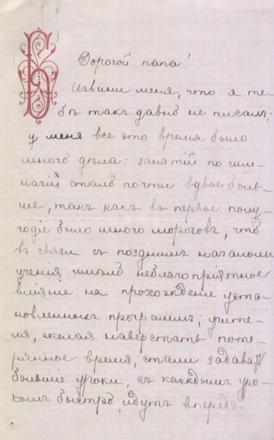 Дорогой папа!
Извини меня, что я те-
бѣ такъ давно не писалъ;
у меня все это время было
много дѣла: занятій по гим-
назіи стало почти вдвое боль-
ше, такъ какъ въ первое полу-
годіе было много морозовъ, что
въ связи съ позднимъ началомъ
ученія имѣло неблагопріятное
вліяніе на прохожденіе уста-
новленныхъ программъ; учите-
ля, желая наверстать поте-
рянное время, стали задавать
большіе уроки, съ каждымъ уро-
комъ быстро идутъ впередъ